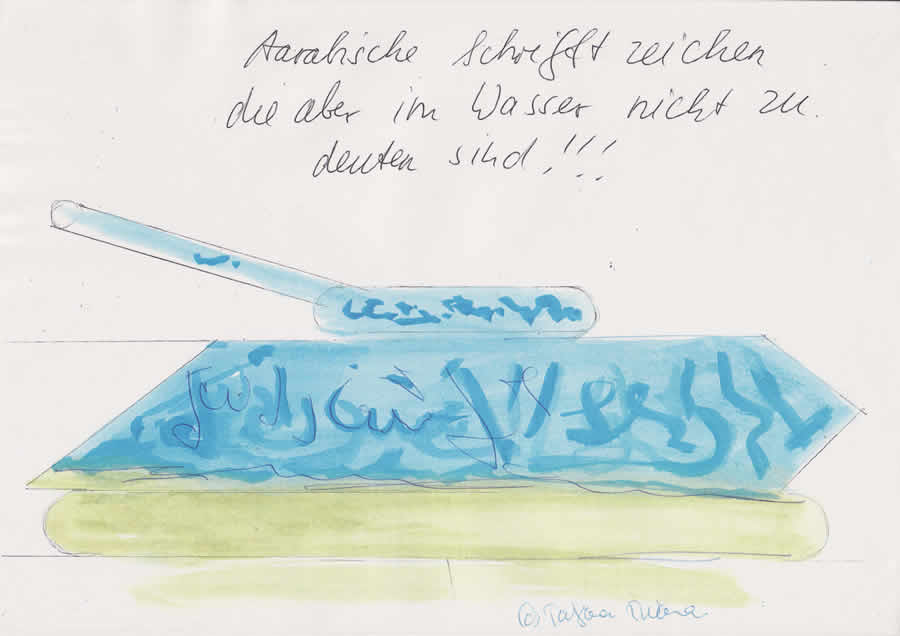 Aarabische Schrifft zeichen
die aber im Wasser nicht zu.
deuten sind,!!!
©